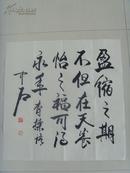 盈缩之期
不但在天养
怡之福可得
永年曹操诗